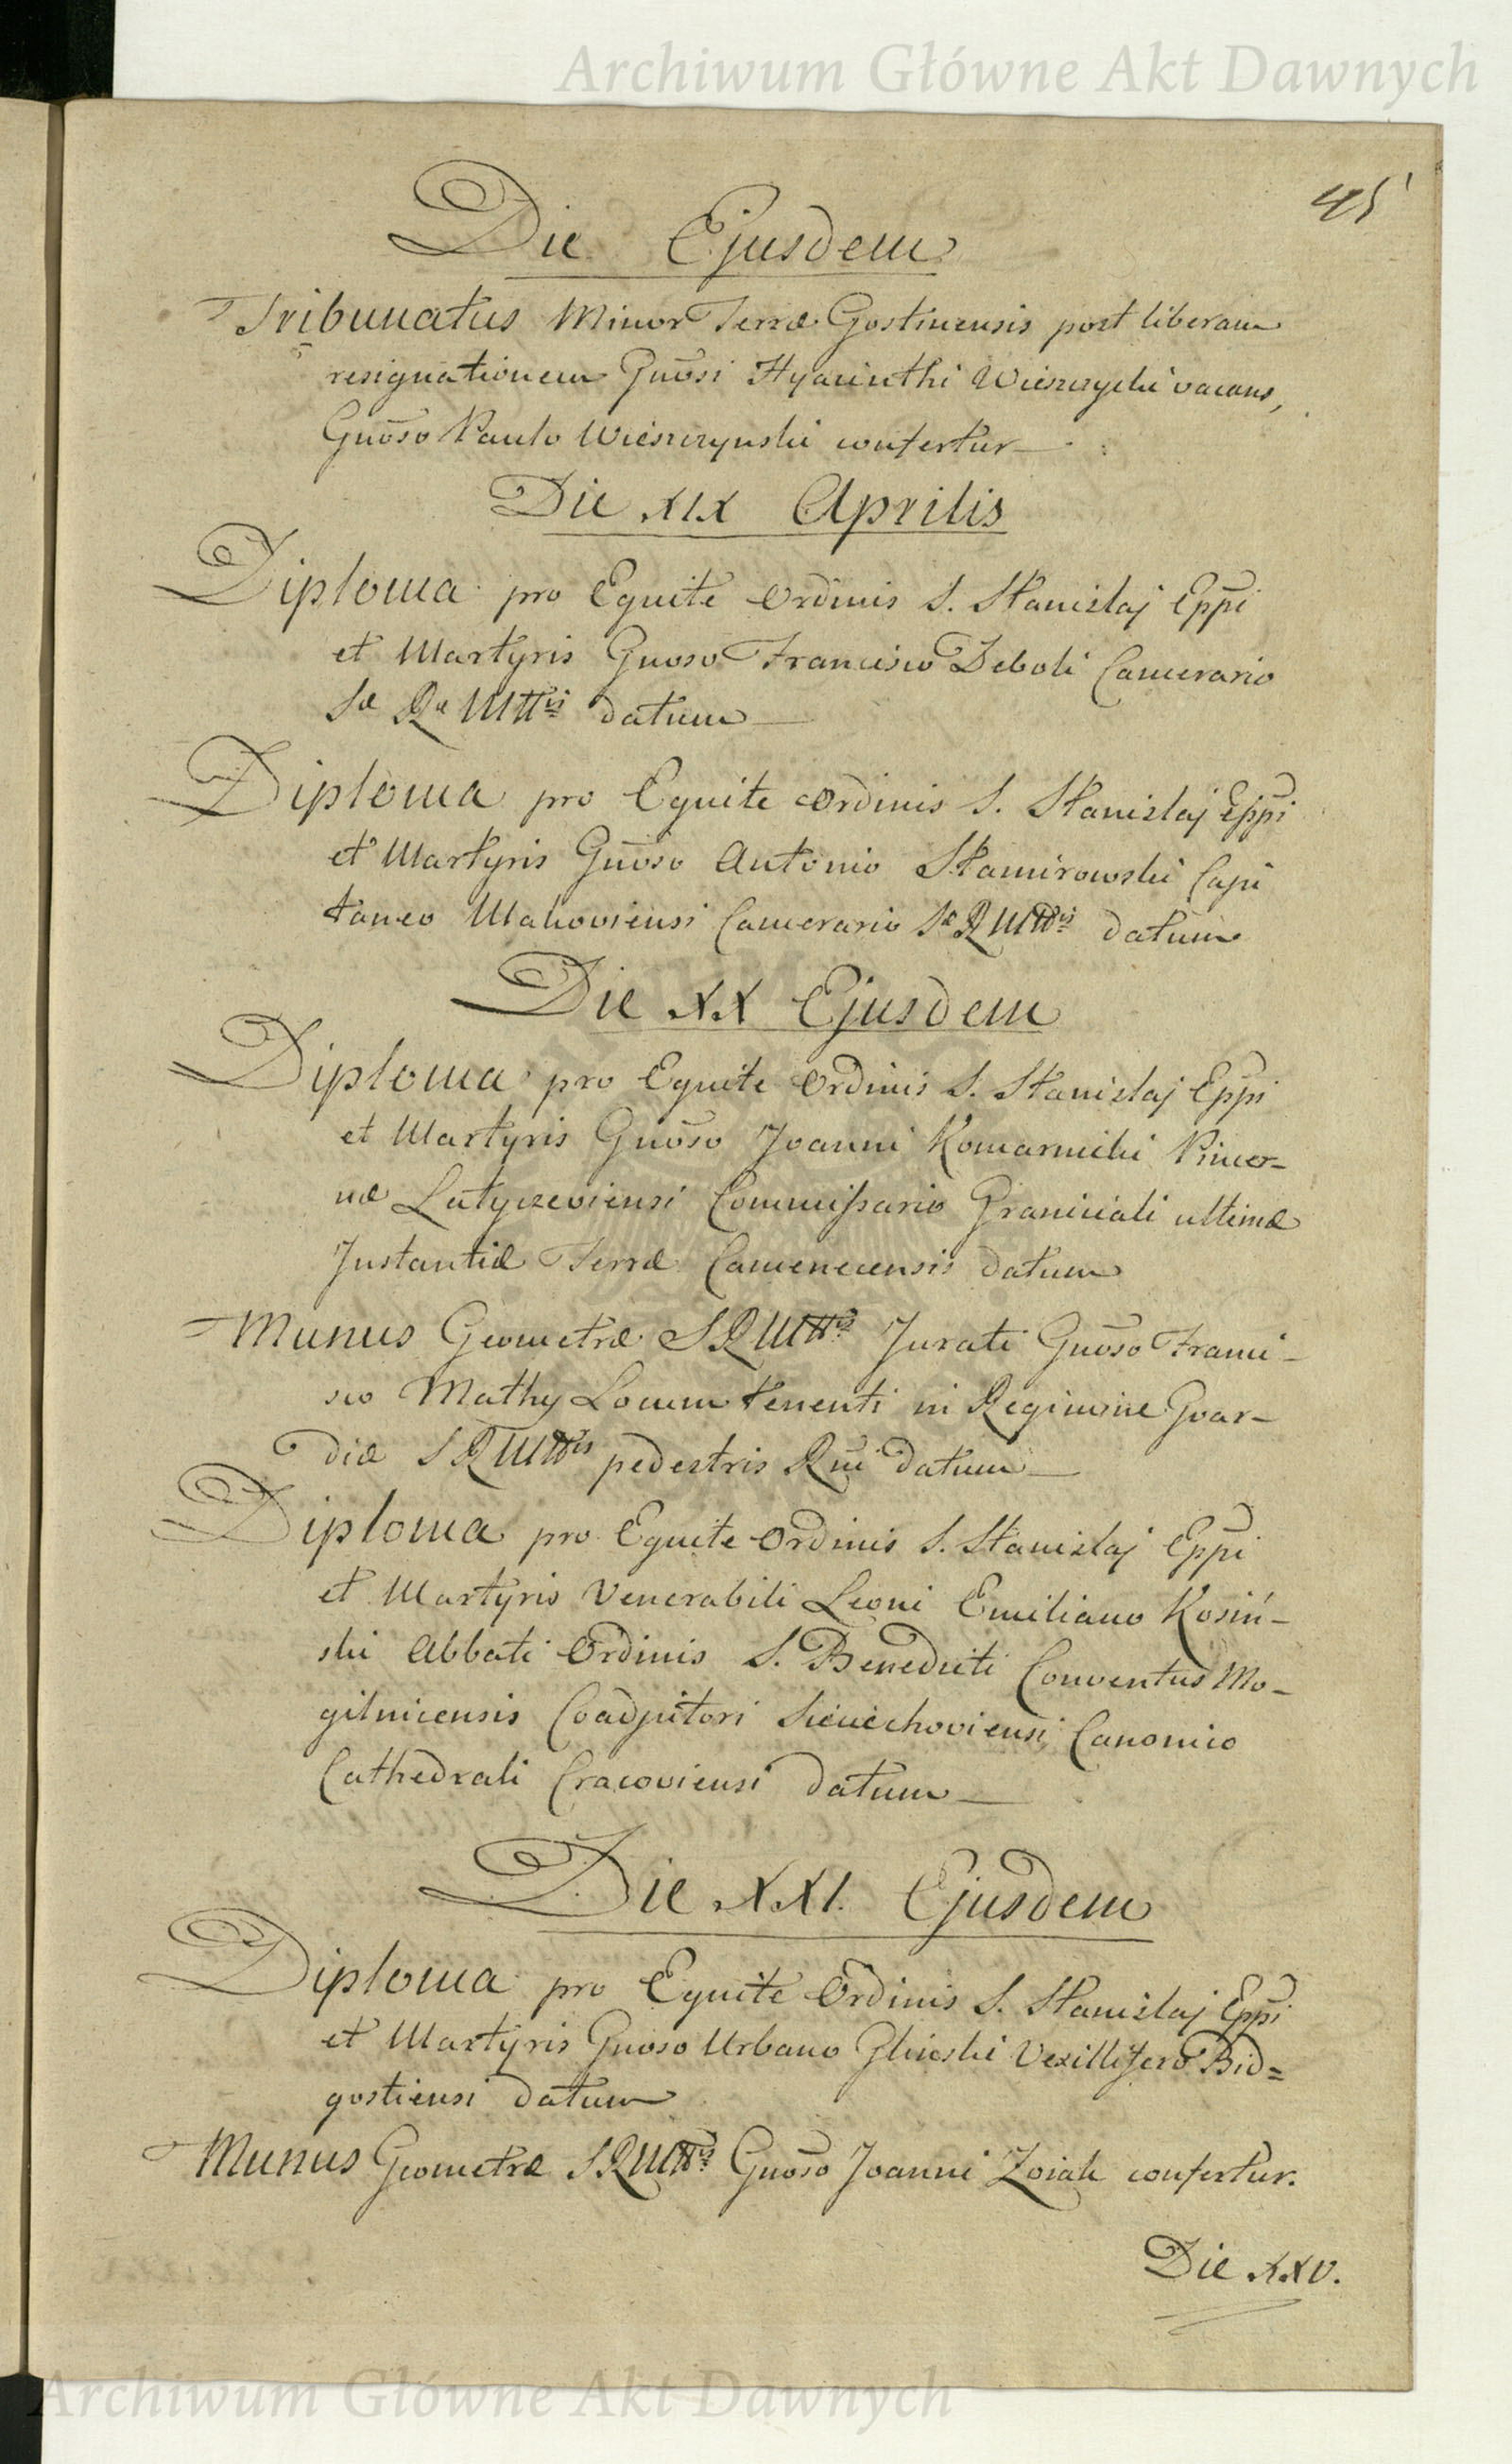 Archiwum Główne Akt Dawnych
45
Die Ejusdem
Tribunatus Minor Terræ Gostinensis post liberam
resignationem Gnōsi Hyacinthi Wieszczycki vacans,
Gnōso Paulo Wieszczynski confertur
Die XIX Aprilis
Diploma pro Equite Ordinis S. Stanislaj Eppi
et Martyris Gnoso Francisco Deboli Camerario
Sæ Ræ Mttis datum
Diploma pro Equite Ordinis S. Stanislaj Eppi
et Martyris Gnōso Antonio Stamirowski Capi
taneo Makoviensi Camerario Sæ R Mttis datum
Die XX Ejusdem
Diploma pro Equite Ordinis S. Stanislaj Eppi
et Martyris Gnōso Joanni Komarnicki Pincer-
næ Latyczeviensi Commissario Graniciali ultimæ
Instantiæ Terræ Camenecensis datum
Munus Geometræ S R Mttis Jurati Gnōso Franci-
sco Mathy Locum tenenti in Regimine Gvar-
diæ S R Mttis pedestris Rni datum
Diploma pro Equite Ordinis S. Stanislaj Eppi
et Martyris Venerabili Leoni Emiliano Kosiń-
ski Abbati Ordinis S. Benedicti Conventus Mo-
gilnicensis Coadjutori Sieciechoviensi Canonico
Cathedrali Cracoviensi datum
Die XXI. Ejusdem
Diploma pro Equite Ordinis S. Stanislaj Eppi
et Martyris Gnoso Urbano Glinski Vexillifero Bid=
gostiensi datum
Munus Geometræ S R Mttis Gnōso Joanni Zoiak confertur.
Die XXV.
Archiwum Główne Akt Dawnych